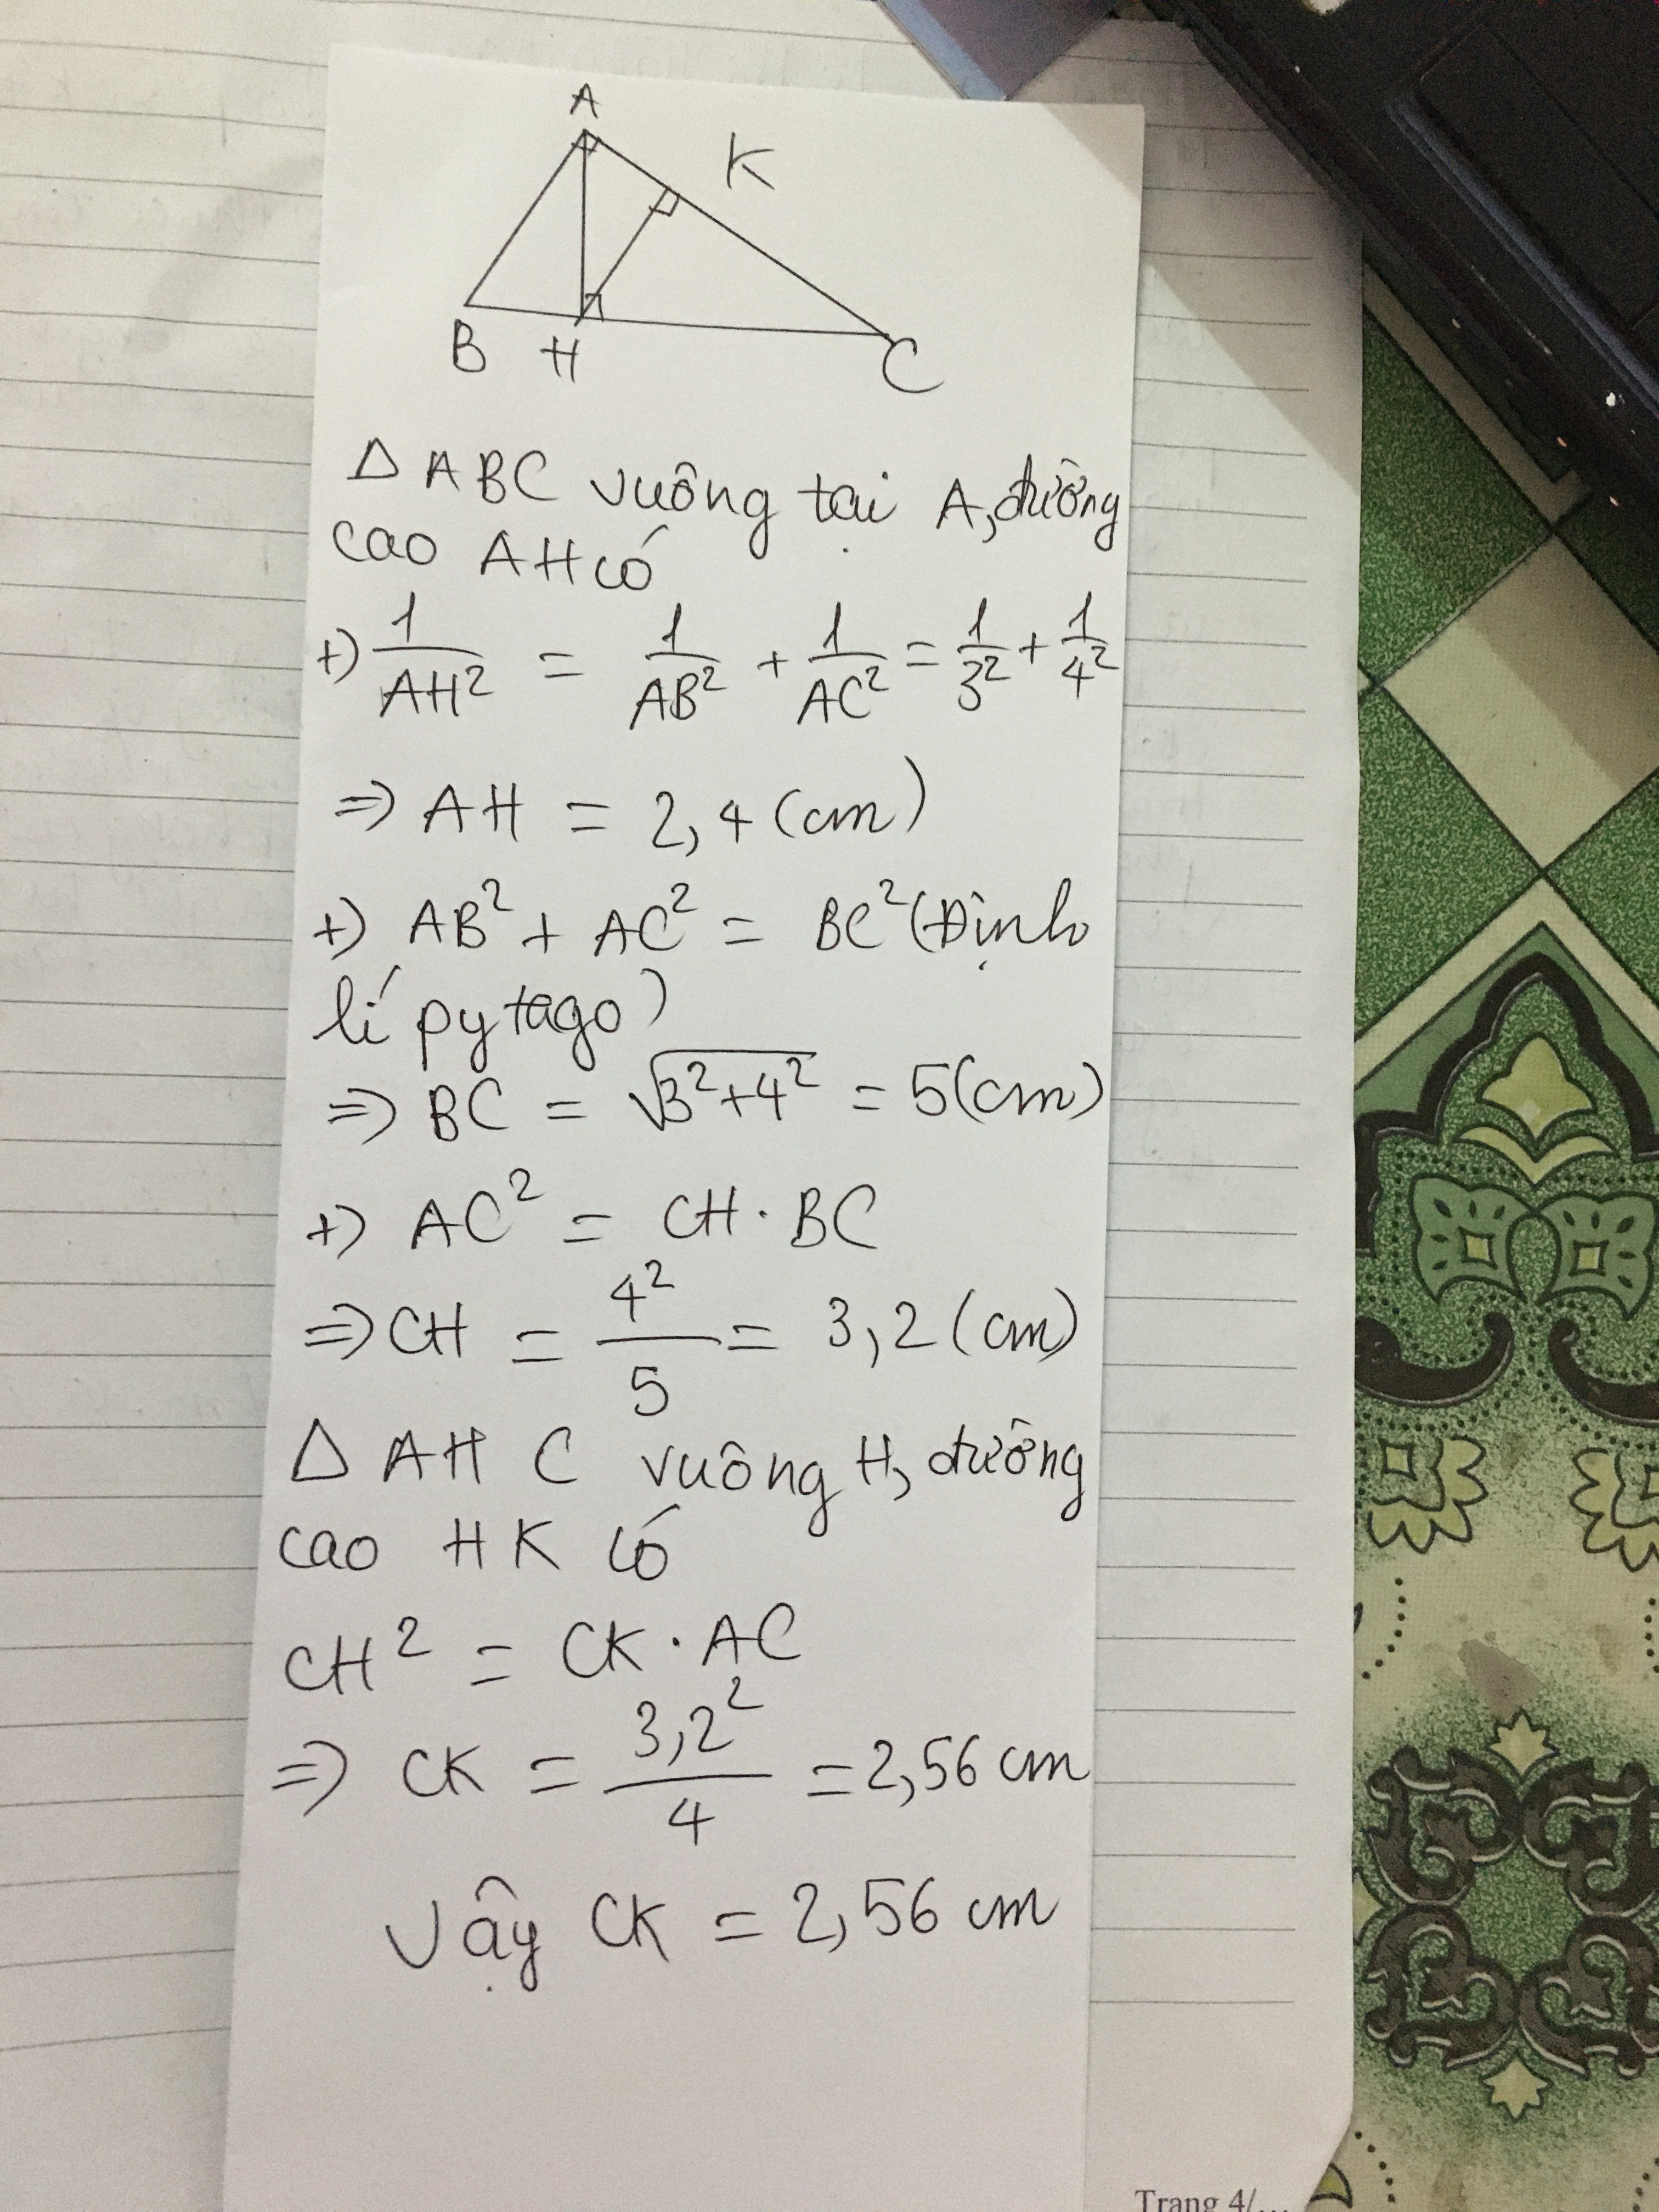 A
K
B H C
Δ ABC vuông tại A, đường
cao AH có
+) 1/AH² = 1/AB² + 1/AC² = 1/3² + 1/4²
=> AH = 2,4 (cm)
+) AB² + AC² = BC² (Định
lí pytago)
=> BC = √(3²+4²) = 5 (cm)
+) AC² = CH . BC
=> CH = 4²/5 = 3,2 (cm)
Δ AHC vuông H, đường
cao HK có
CH² = CK . AC
=> CK = 3,2²/4 = 2,56 cm
Vậy CK = 2,56 cm
Trang 4/...